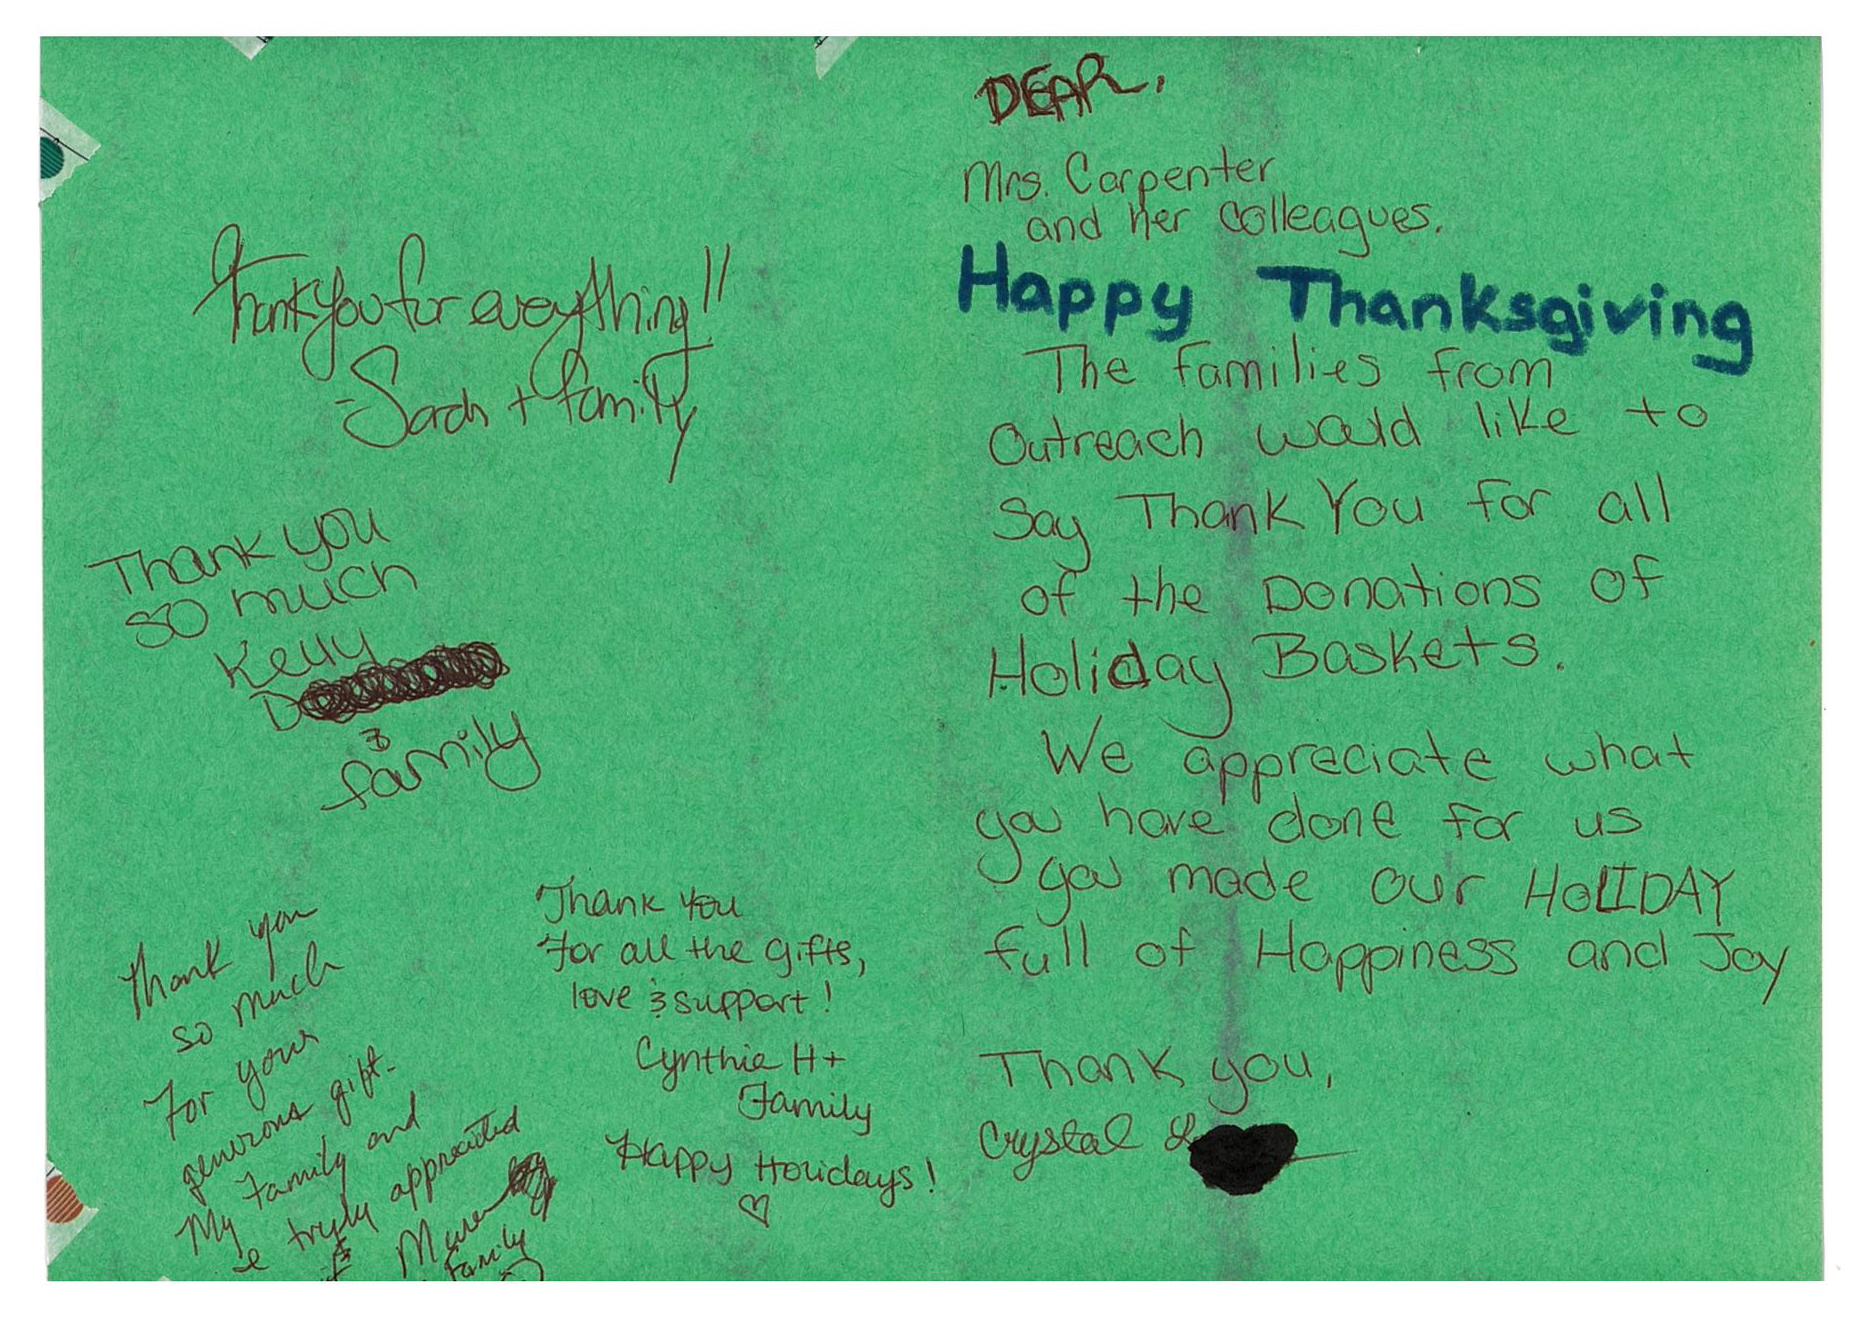 Thank you for everything!!
- Sarah + family
Thank you
so much
Kelly
D
&
family
Thank you
so much
For your
generous gift-
My Family and
I truly appreciated
it
family
Thank you
For all the gifts,
love & support!
Cynthia H+
Family
Happy Holidays!
DEAR,
Mrs. Carpenter
and her colleagues.
Happy Thanksgiving
The Families from
Outreach would like to
Say Thank You for all
of the Donations of
Holiday Baskets.
We appreciate what
you have done for us
you made our HOLIDAY
full of Happiness and Joy
Thank you,
Crystal L